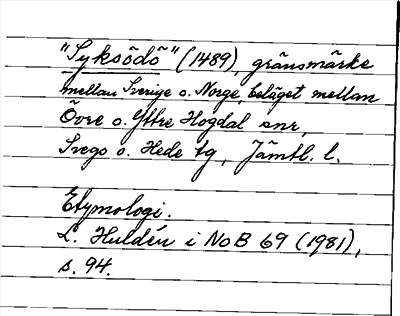 "Syksödö" (1489), gränsmärke
mellan Sverige o. Norge, beläget mellan
Övre o. Yttre Hogdal snr,
Svegs o. Hede tg, Jämtl. l.
Etymologi.
L. Huldén i NoB 69 (1981),
s. 94.